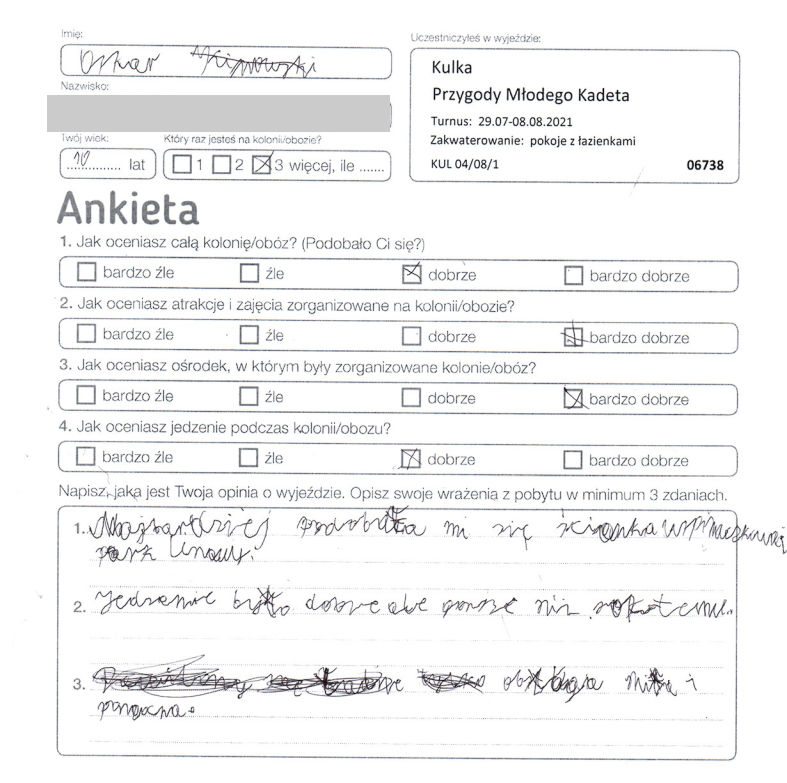 Imię:
Oskar
Nazwisko:
Twój wiek:
10 lat
Który raz jesteś na kolonii/obozie?
1 2 3 więcej, ile .......
Uczestniczyłeś w wyjeździe:
Kulka
Przygody Młodego Kadeta
Turnus: 29.07-08.08.2021
Zakwaterowanie: pokoje z łazienkami
KUL 04/08/1 06738
Ankieta
1. Jak oceniasz całą kolonię/obóz? (Podobało Ci się?)
bardzo źle źle dobrze bardzo dobrze
2. Jak oceniasz atrakcje i zajęcia zorganizowane na kolonii/obozie?
bardzo źle źle dobrze bardzo dobrze
3. Jak oceniasz ośrodek, w którym były zorganizowane kolonie/obóz?
bardzo źle źle dobrze bardzo dobrze
4. Jak oceniasz jedzenie podczas kolonii/obozu?
bardzo źle źle dobrze bardzo dobrze
Napisz, jaka jest Twoja opinia o wyjeździe. Opisz swoje wrażenia z pobytu w minimum 3 zdaniach.
1. Najbardziej podobała mi się ścianka wspinaczkowa i
park linowy.
2. Jedzenie było dobre ale gorsze niż rok temu.
3. obsługa miła i
pomocna.